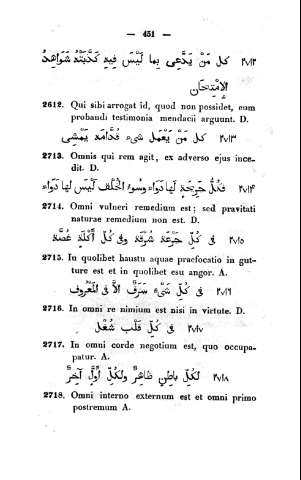 — 451 —
٢٧١٢ كل من يدّعى بما ليس فيه كذّبته شواهد
الإمتحان
2612. Qui sibi arrogat id, quod non possidet, eum
probandi testimonia mendacii arguunt. D.
٢٧١٣ كل من يعمل شىء قدّامه يمشى
2713. Omnis qui rem agit, ex adverso ejus ince-
dit. D.
٢٧١۴ فكلّ جريحة لها دواء وسوء الخلف ليس لها دواء
2714. Omni vulneri remedium est; sed pravitati
naturae remedium non est. D.
٢٧١٥ فى كل جرعة شرقة وفى كل أكلة غصّة
2715. In quolibet haustu aquae praefocatio in gut-
ture est et in quolibet esu angor. A.
٢٧١٦ فى كلّ شىء سرف الّا فى المعروف
2716. In omni re nimium est nisi in virtute. D.
٢٧١٧ فى كلّ قلب شغل
2717. In omni corde negotium est, quo occupa-
patur. A.
٢٧١٨ لكل باطن ظاهر ولكل أوّل آخر
2718. Omni interno externum est et omni primo
postremum A.